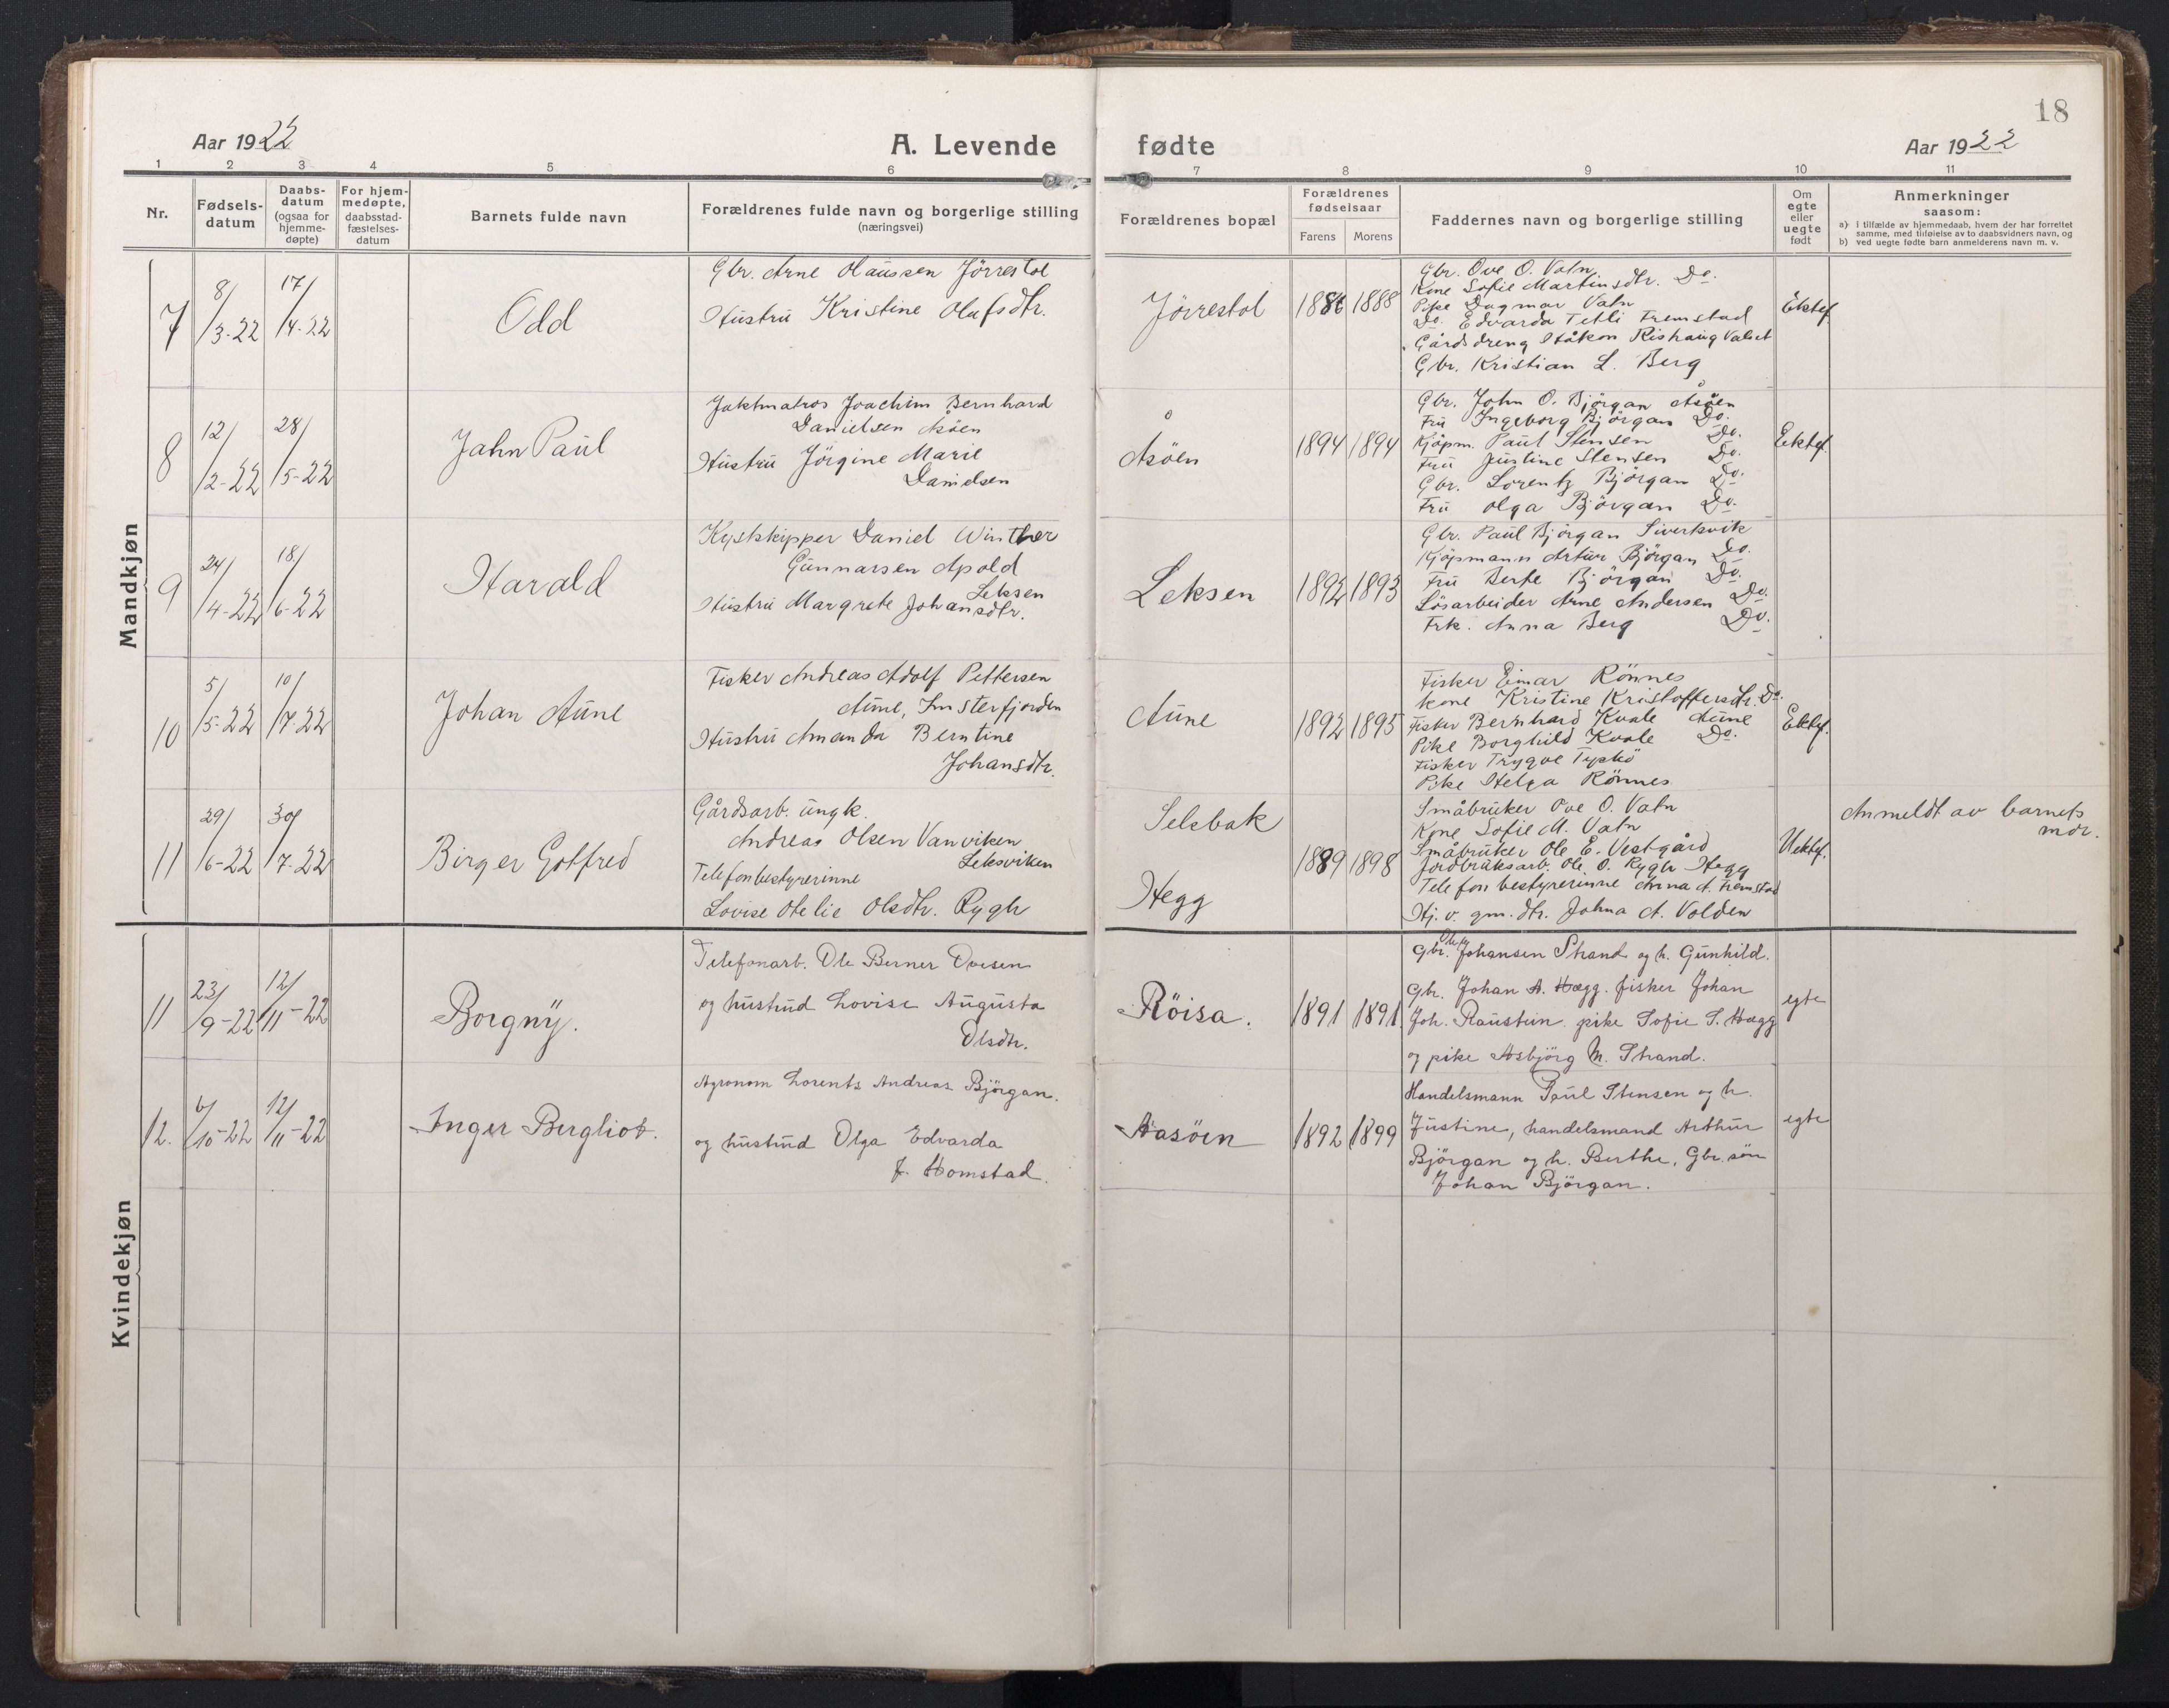 18
Aar 1922
A. Levende fødte
Aar 1922
1 2 3 4 5 6 7 8 9 10 11
Nr.
Fødsels-
datum
Daabs-
datum
(ogsaa for
hjemme-
døpte)
For hjem-
medøpte,
daabsstad-
fæstelses-
datum
Barnets fulde navn
Forældrenes fulde navn og borgerlige stilling
(næringsvei)
Forældrenes bopæl
Forældrenes
fødselsaar
Farens Morens
Faddernes navn og borgerlige stilling
Om
egte
eller
uegte
født
Anmerkninger
saasom:
a) i tilfælde av hjemmedaab, hvem der har forrettet
samme, med tilføielse av to daabsvidners navn, og
b) ved uegte fødte barn anmelderens navn m. v.
Mandkjøn
7
8/3-22
17/4-22
Odd
Gbr. Arne Olaussen Jörrestol
Hustru Kristine Olufsdtr.
Jörrestol
1886 1888
Gbr. Ove O. Vatn
Kone Sofie Martinsdtr. Do.
Pike Dagmar Vatn
Do. Edvarda Tetli Fremstad
Gårdsdreng Håkon Rishaug Valset
Gbr. Kristian L. Berg
Ektef.
8
12/2-22
28/5-22
Jahn Paul
Jaktmatros Joachim Bernhard
Danielsen Åsöen
Hustru Jörgine Marie
Danielsen
Åsöen
1894 1894
Gbr. John O. Björgan Åsöen
Fru Ingeborg Björgan Do.
Kjöpm. Paul Stensen Do.
Fru Justine Stensen Do.
Gbr. Lorentz Björgan Do.
Fru Olga Björgan Do.
Eektef.
9
24/4-22
18/6-22
Harald
Kystskipper Daniel Winther
Gunnarsen Apold
Leksen
Hustru Margrete Johansdtr.
Leksen
1892 1893
Gbr. Paul Björgan Siverkvik
Kjöpmann Artur Björgan Do.
Fru Berte Björgan Do.
Lösarbeider Arne Andersen Do.
Frk. Anna Berg Do.
10
5/5-22
10/7-22
Johan Aune
Fisker Andreas Adolf Pettersen
Aune, Imsterfjorden
Hustru Amanda Berntine
Johansdtr.
Aune
1892 1895
Fisker Einar Rönnes
Kone Kristine Kristoffersdtr. Do.
Fisker Bernhard Kvale Aune
Pike Borghild Kvale Do.
Fisker Trygve Tyskö
Pike Helga Rönnes
Ektef.
11
29/6-22
30/7-22
Birger Gotfred
Gårdsarb. ungk.
Andreas Olsen Vanviken
Leksviken
Telefonbestyrerinne
Lovise Otelie Olsdtr. Rygh
Selsbak
Hegg
1889 1898
Småbruker Ove O. Vatn
Kone Sofie M. Vatn
Småbruker Ole E. Vestgård
Jordbruksarb. Ole O. Rygh Hegg
Telefonbestyrerinne Anna A. Fremstad
Hj. v. gm. dtr. Johna A. Volden
Uektef.
Anmeldt av barnets
mor.
Kvindekjøn
11
23/9-22
12/11-22
Borgny.
Telefonarb. Ole Berner Ovesen
og hustrud Lovise Augusta
Olsdtr.
Röisa.
1891 1891
Gbr. Johansen Strand og h. Gunhild.
Gbr. Johan A. Hægg. fisker Johan
Joh. Raustein. pike Sofie S. Hægg
og pike Asbjörg M. Strand.
egte
12.
6/10-22
12/11-22
Inger Bergliot.
Agronom Lorents Andreas Björgan.
og hustrud Olga Edvarda
f. Homstad.
Aasöen
1892 1899
Handelsmann Paul Stensen og h.
Justine, handelsmand Arthur
Björgan og h. Berthe, Gbr. sön
Johan Björgan.
egte